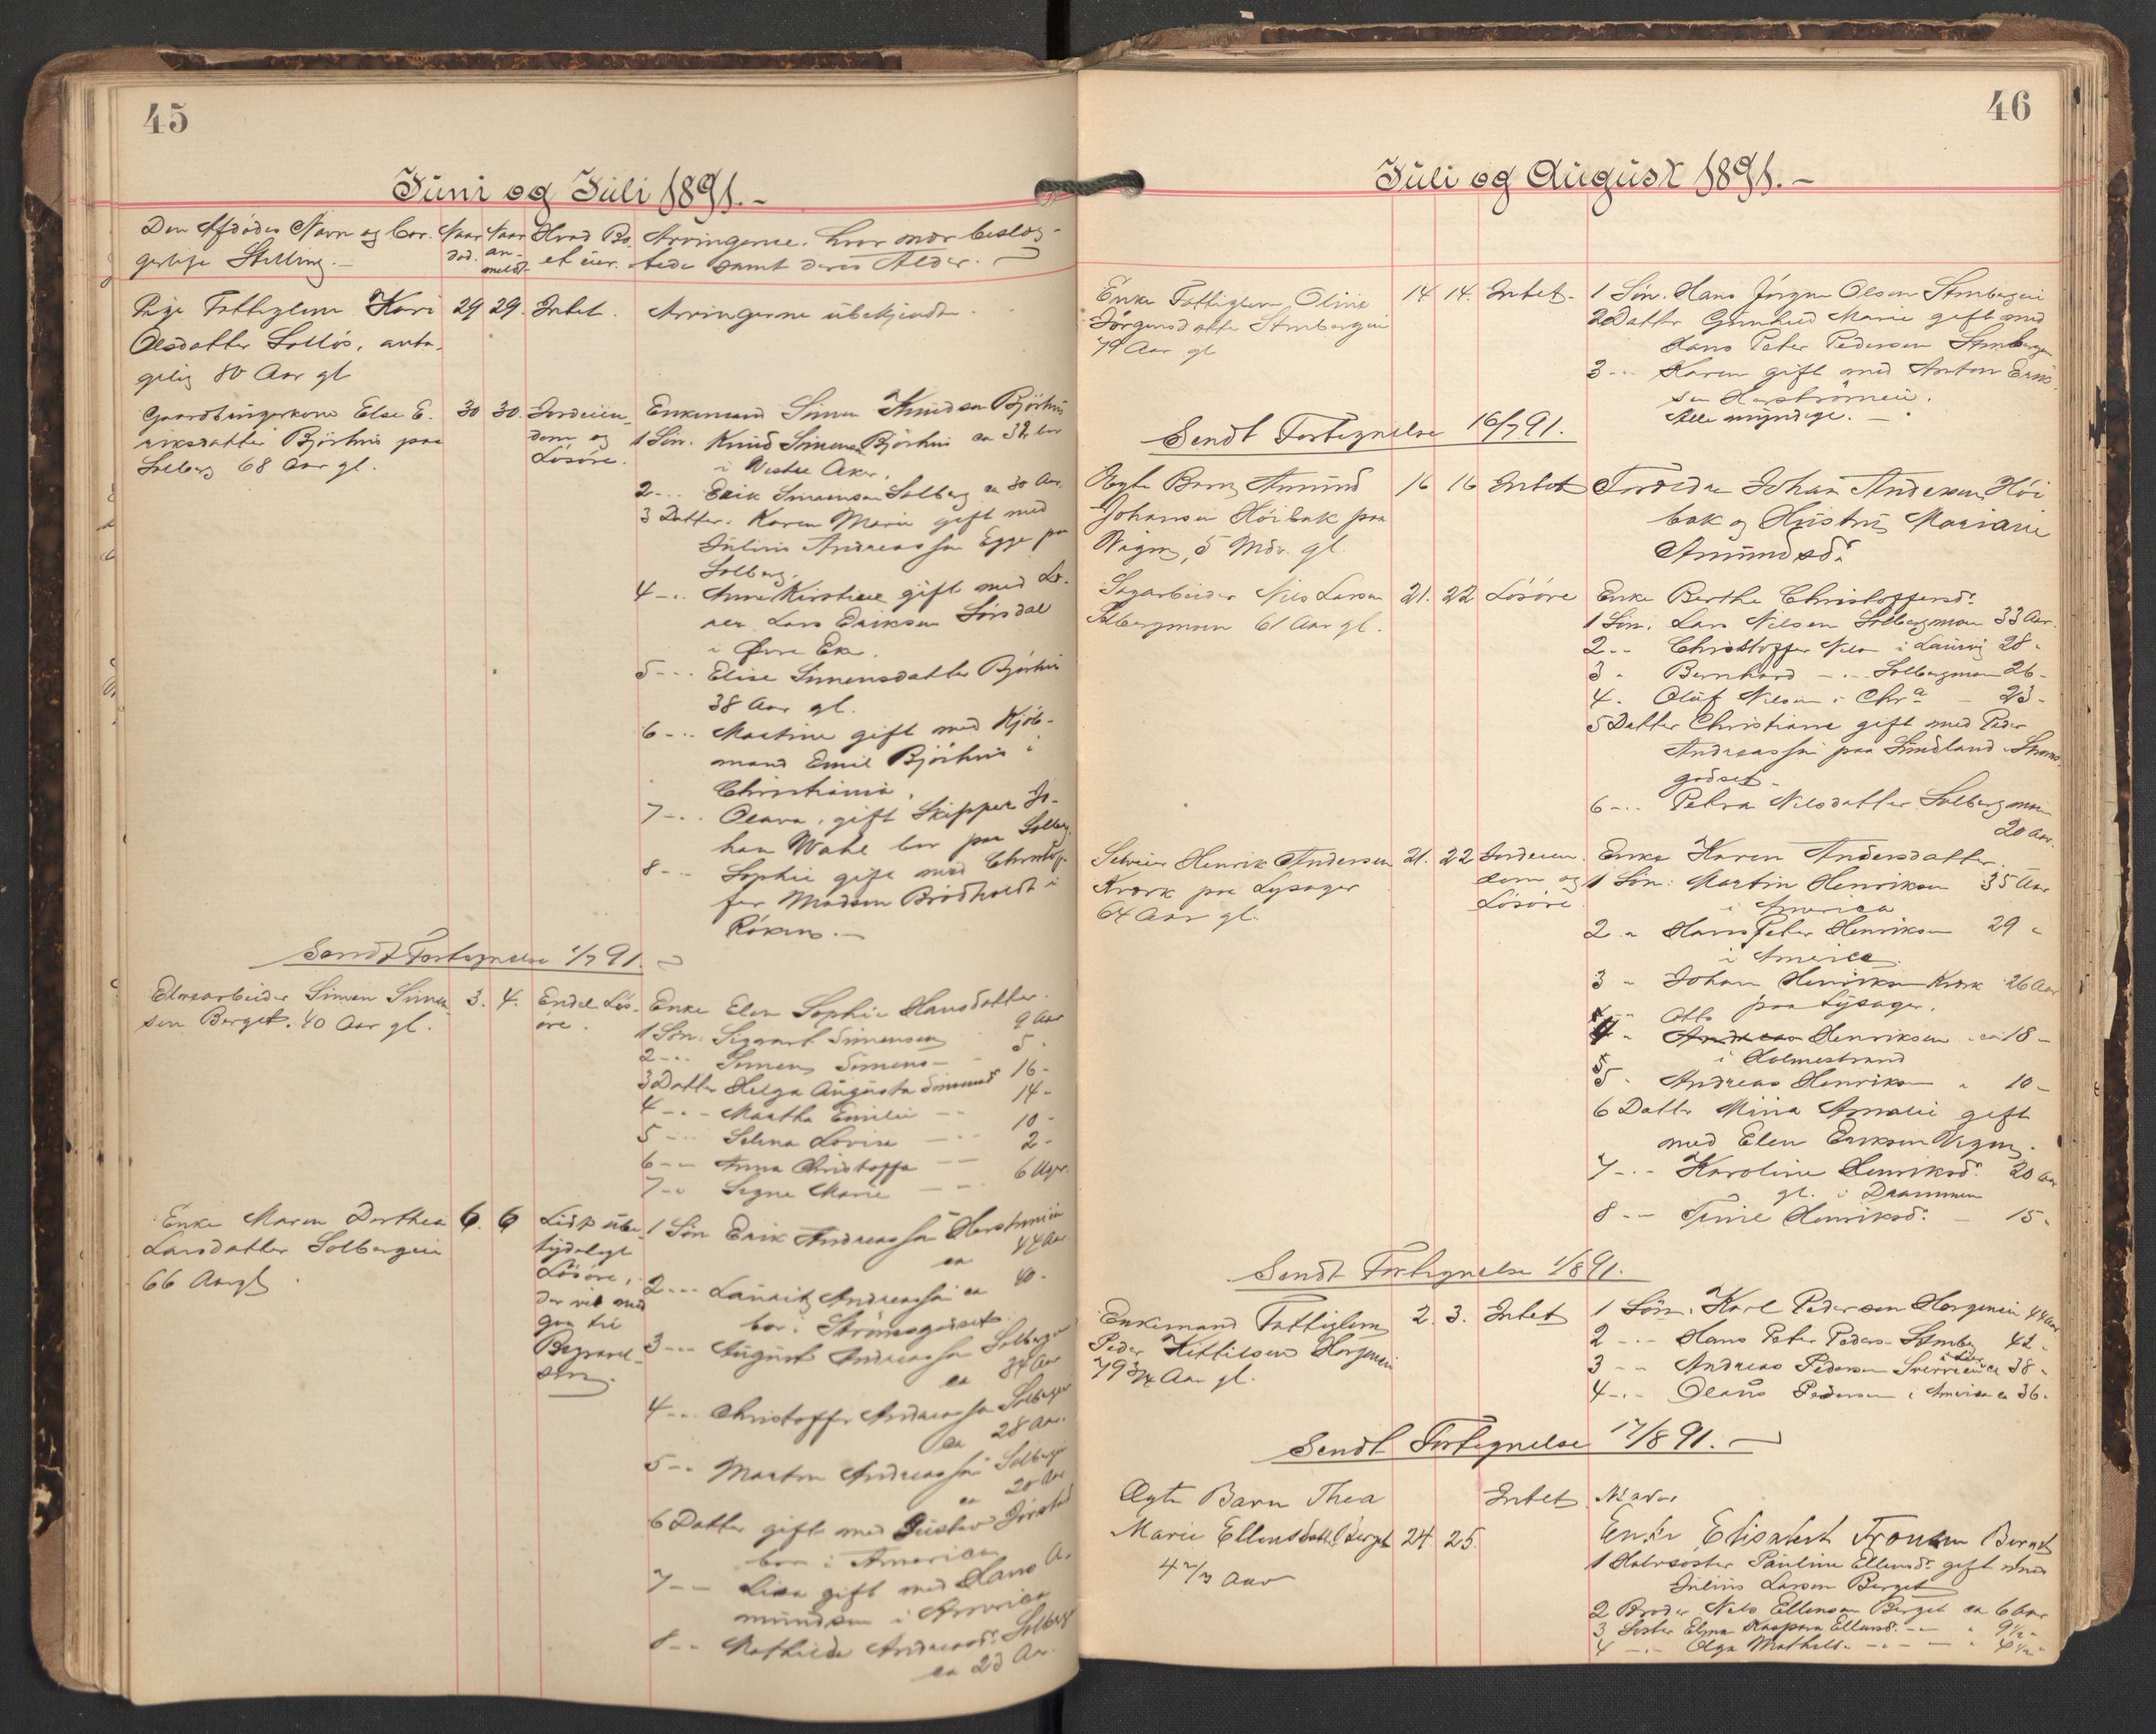 45
Juni og Juli 1891.-
Den Afdødes Navn og bor-
gerlige Stilling.-
Naar død.
Naar an-meldt
Hvad Bo-
et eier.
Arvingerne, hvor nær beslæg-
tede samt deres Alder.
Pige Fattiglem Kari
Olsdatter Solløs, anta-
gelig 80 Aar gl
29 29. Intet. Arvingerne ubekjendt.
Gaardbrugerkone Else E-
riksdatter Björhus paa
Solberg 68 Aar gl.
30 30. Jordeien-
dom og
Lösöre.
Enkemand Simen Knudsen Björhus
1 Sön. Knud Simensen Björhus ca 32 bor
i Vestre Aker.
2 - .. Erik Simensen Solberg ca 30 Aar.
3 Datter. Karen Marie gift med
Julius Andreassen Egge paa
Solberg.
4 - .. Anne Kirstine gift med Læ-
rer Lars Eriksen Sörsdal
i Övre Eker.
5 - .. Elise Simensdatter Björhus
38 Aar gl.
6 - .. Martine gift med Kjöb-
mand Emil Björhus i
Christiania.
7 - .. Olava, gift Skipper Jo-
han Wahl bor paa Solberg.
8 - .. Sophie gift med Christof-
fer Madsen Brödholdt i
Röken.-
Sendt Fortegnelse 1/7 91.
Simen Simen-
sen Berget. 40 Aar gl.
3. 4. Endel Lös-
öre.
Enke Elen Sophie Hansdatter.
1 Sön. Sigvart Simensen 9 Aar
2 - .. Simen Simens- - 5 -
3 Datter Helga Augusta Simensd. 16 -
4 - .. Martha Emilie - - 14 -
5 - .. Selina Lovise - .. 10 -
6 - - Anna Christoffa - - 2 -
7 - .. Signe Marie - .. 6 Uger.
Enke Maren Dorthea
Larsdatter Solbergeie
66 Aar gl
6. 6 Lidt ube-
tydeligt
Lösöre,
der vil med
gaa til
Begravel-
sen.
1 Sön Erik Andreassen
ca 44 Aar
2 - .. Lauritz Andreassen ca 40 -
bor i Strömsgodset.
3 - .. August Andreassen Solbergeie
ca 34 Aar
4 - .. Christoffer Andreassen Solbergeie
ca 28 Aar.
5 - .. Morten Andreassen Solbergeie
ca 20 Aar
6 Datter gift med Gustav
bor i America
7 - - Lisa gift med Hans A-
mundsen i America
8 - - Mathilde Andreasd. Solberge
ca 23 Aar.
46
Juli og August 1891.-
Enke Fattiglem Oline
Jörgensdatter Stenbergeie
79 Aar gl
14 14. Intet.
1 Sön. Hans Jörgen Olsen Stenbergeie
2 Datter Gunhild Marie gift med
Hans Peter Pedersen Stenbergeie
3 - .. Karen gift med Anton
Alle myndige.-
Sendt Fortegnelse 16/7 91.
Ægte Barn Amund
Johansen Höibak paa
5 Mdr. gl.
16 16 Intet
Forældre Johan Andersen Höi
bak og Hustru Mariane
Amundsd.
Sagarbeider Nils Larsen
Solbergmoen 61 Aar gl.
21. 22 Lösöre
Enke Berthe Christoffersd.
1 Sön. Lars Nilsen Solbergmoen 33 Aar.
2 .. Christoffer Nilsen i Laurvig 28 -
3 - Bernhard - .. - Solbergmoen 26 -
4 - Oluf Nilsen i Chra - 23 -
5 Datter Christiane gift med Peder
Andreassen paa Sundland, Ströms-
godset -
6 - .. Petra Nilsdatter Solbergmoen
20 Aar.
Selveier Henrik Andersen
Kværk paa Lysager
64 Aar gl.
21. 22 Jordeien-
dom og
Lösöre
Enke Karen Andersdatter.
1 Sön: Martin Henriksen 35 Aar
i America
2 - Hans Peter Henriksen 29 -
i America.
3 - Johan Henriksen Kværk 26 Aar
paa Lysager.
Otto
4 - Andreas Henriksen - ca 18 -
i Holmestrand
5 - Andreas Henriksen - 10 -
6 Datter Mina Amalie gift
med Elen Eriksen
7 - .. Karoline Henriksd. 20 Aar
gl. i Drammen
8 - - Henriksd. - 15 -
Sendt Fortegnelse 1/8 91.
Enkemand Fattiglem
Peder Kittilsen Horgeneie
79 3/4 Aar gl.
2. 3. Intet
1 Sön. Karl Pedersen Horgeneie 44 Aar
2 - .. Hans Peter Peders- 42 -
3 - - Andreas Pedersen ca 38 -
4 - .. Olaus Pedersen i America ca 36 -
Sendt Fortegnelse 17/8 91.-
Ægte Barn Thea
Marie Ellensdatter Berget
4 2/3 Aar
24 25.
Intet
Moder
Enke Elisabeth Berget
1 Halvsöster Pauline Ellensd. gift med
Julius Larsen Berget
2 Broder Nils Ellensen Berget ca 6 Aar
3 Söster Elma Kaspara Ellensd. - - - 9½ -
4 - .. Olga Mathild. - - - - ½ -